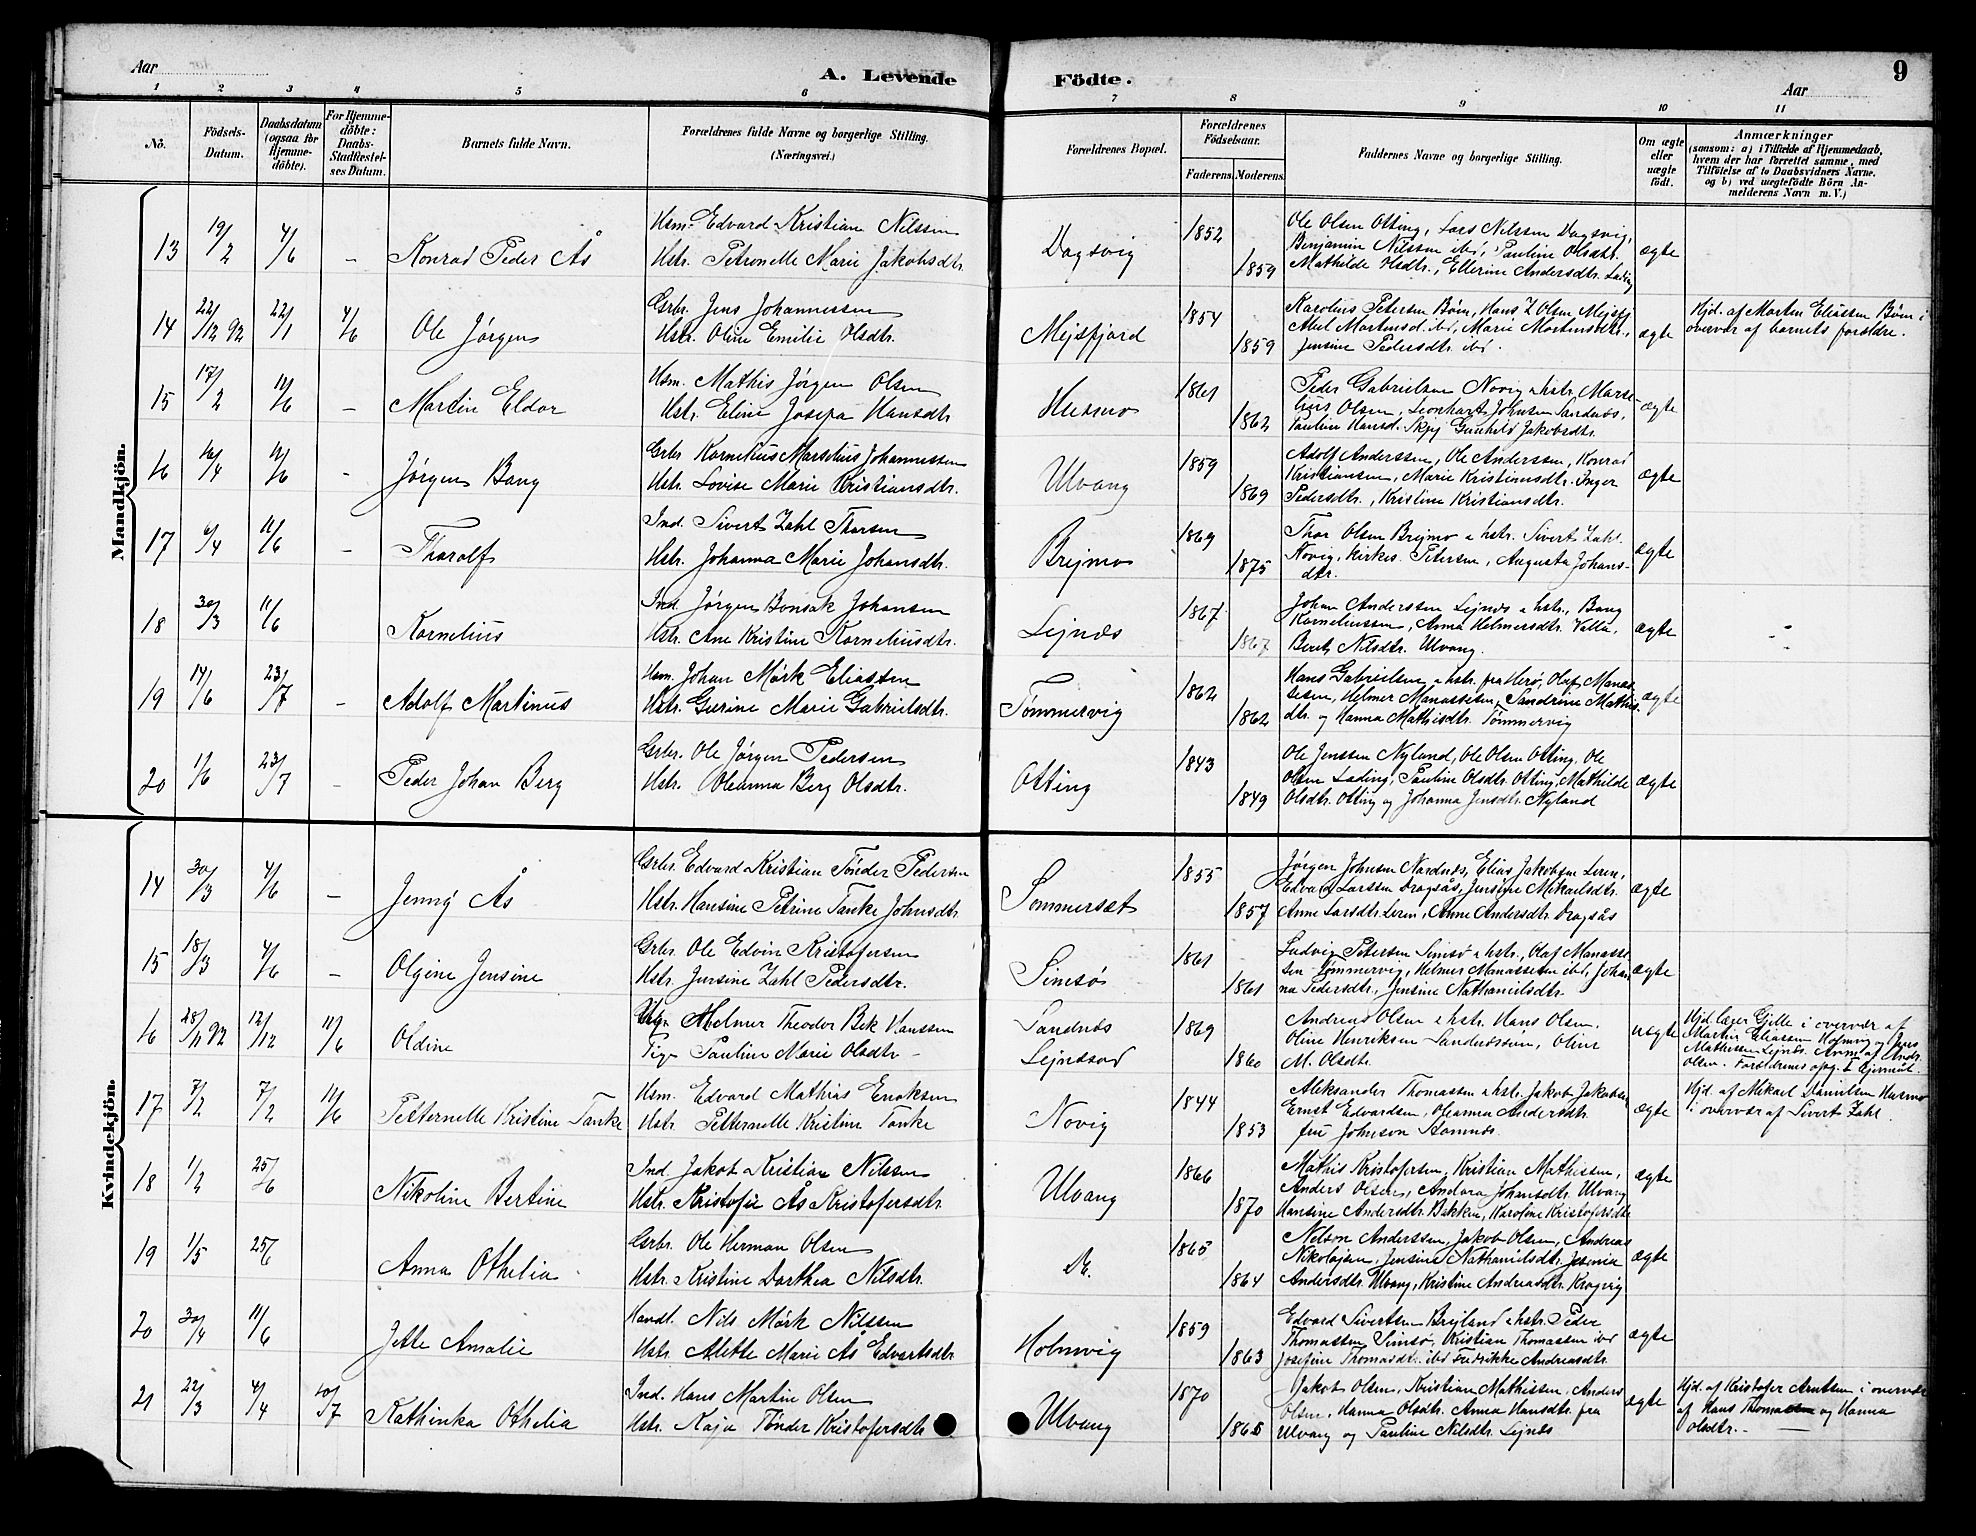 Aar
A. Levende Födte.
Aar
9
1 2 3 4 5 6 7 8 9 10 11
No.
Födsels-
Datum.
Daabsdatum
(ogsaa for
Hjemme-
döbte).
For Hjemme-
döbte:
Daabs-
Stadfæstel-
ses Datum.
Barnets fulde Navn.
Forældrenes fulde Navne og borgerlige Stilling.
(Næringsvei.)
Forældrenes Bopæl.
Forældrenes
Födselsaar.
Faderens.
Moderens.
Faddernes Navne og borgerlige Stilling.
Om ægte
eller
uægte
födt.
Anmærkninger
(saasom: a) i Tilfælde af Hjemmedaab,
hvem der har forrettet samme, med
Tilföielse af to Daabsvidners Navne,
og b) ved uægtefödte Börn An-
melderens Navn m. V.)
Mandkjön.
13 19/2 4/6 - Konrad Peder Ås
Hsm. Edvard Kristian Nilssen
Hstr. Petronelle Marie Jakobsdtr.
Dagsvig 1852 1859
Ole Olsen Otting, Lars Nilssen Dagsvig,
Benjamin Nilssen ibd, Pauline Olsdtr.
Mathilde Olsdtr., Ellerine Andersdtr. Lading
ægte
14 22/12 92 22/1 4/6 Ole Jørgen
Grbr. Jens Johannessen
Hstr. Oline Emilie Olsdtr.
Mejsfjord 1854 1859
Karolius Petersen Bøen, Hans Z Olsen Mejsfj
Abel Martinsd. ibd, Marie Martinsdtr.,
Jensine Pedersdtr ibd.
ægte
Hjd. af Morten Eliassen Bøen i
overvær af barnets forældre.
15 17/2 11/6 - Martin Eldor
Hsm. Mathis Jørgen Olsen
Hstr. Eline Josefa Hansdtr
Husmo 1861 1862
Peder Gabrielsen Novig & hstr, Marse-
lius Olsen, Leonhart Johnsen Sandnæs,
Pauline Hansd. Skjej Gunhild Jakobsdtr.
ægte
16 16/4 11/6 - Jørgen Bang
Grbr Kornelius Marselius Johannessen
Hstr. Lovise Marie Kristiansdtr.
Ulvang 1859 1869
Adolf Anderssen, Ole Anderssen, Konrad
Kristiansen, Marie Kristiansdtr. Inger
Pedersdtr., Kristine Kristiansdtr.
ægte
17 6/4 11/6 - Tharolf
Ind. Sivert Zahl Tharsen
Hstr. Johanna Marie Johansdtr.
Brejmo 1869 1875
Thor Olsen Brejmo & hstr. Sivert Zahl
Novig, kirkes. Petersen, Augusta Johans-
dtr.
ægte
18 30/3 11/6 Kornelius
Ind. Jørgen Bonsak Johansen
Hstr. Ane Kristine Korneliusdtr.
Lejnæs 1867 1867
Johan Anderssen Lejnæs & hstr., Bang
Korneliussen, Anna Helmersdtr. Valla,
Berit Nilsdtr. Ulvang.
ægte
19 14/6 23/7 - Adolf Martinus
Hsm. Johan Mörk Eliassen
Hstr. Gurine Marie Gabrielsdtr.
Tömmervig 1862 1862
Hans Gabrielsen & hstr. fra Herø, Olaf Manas-
sesen, Helmer Manassesen, Sandrine Mathis-
dtr. og Hanna Mathisdtr. Tömmervig
ægte
20 1/6 23/7 - Peder Johan Berg
Grbr. Ole Jørgen Pedersen
Hstr. Oleanna Berg Olsdtr.
Otting 1843 1849
Ole Jenssen Nyland, Ole Olsen Otting, Ole
Olsen Lading, Pauline Olsdtr. Otting, Mathilde
Olsdtr. Otting og Johanna Jensdtr. Nyland
ægte
Kvindekjön.
14 30/3 4/6 - Jenny Ås
Grbr. Edvard Kristian Tönder Pedersen
Hstr. Hansine Petrine Tanke Johnsdtr
Sommerset 1855 1857
Jørgen Johnsen Nordnæs, Elias Jakobsen Leren,
Edvard Larssen Dragsås, Jensine Mikaelsdtr.
Anne Larsdtr. Leren, Anne Andersdtr. Dragsås
ægte
15 18/3 4/6 - Olgine Jensine
Grbr. Ole Edvin Kristofersen
Hstr. Jensine Zahl Pedersdtr.
Simsø 1861 1861
Ludvig Petersen Simsø & hstr., Olaf Manasse
sen Tømmervig, Helmer Manassesen ibd, Johan
na Pedersdtr., Jensine Nathanielsdtr
ægte
16 28/11 92 12/12 11/6 Oldine
Helmer Theodor Bek Hanssen
Pige Pauline Marie Olsdtr -
Sandnæs
Lejnæsod 1869 1860
Andreas Olsen & hstr. Hans Olsen,
Oline Henriksen Sandnæssøen, Oline
M. Olsdtr.
uægte
Hjd læger Gjelle i overvær af
Martin Eliassen Holmvig og Jens
Mathissen Lejnæs. Anm. af Andr.
Olsen. Forældrenes opg. 1 lejermål.
17 7/2 7/2 11/6 Petternelle Kristine Tanke
Hsm. Edvard Mathias Enoksen
Hstr Petternelle Kristine Tanke
Novig 1844 1853
Aleksander Thomassen & hstr. Jakob Jakobsen
Ernst Edvardsen, Oleanna Andersdtr
fru Johnson Stamnæs.
ægte
Hjd. af Mikael Danielsen Husmo
i overvær af Sivert Zahl.
18 1/2 25/6 Nikoline Bertine
Ind. Jakob Kristian Nilssen
Hstr. Kristofie Ås Kristofersdtr.
Ulvang 1866 1870
Mathis Kristofersen, Kristian Mathissen,
Anders Olsen, Andora Johansdtr. Ulvang
Hansine Andersdtr. Bakken, Karoline Kristofersdtr
ægte
19 1/5 25/6 Anna Othelia
Grbr. Ole Herman Olsen
Hstr. Kristine Dorthea Nilsdtr.
Do. 1865 1864
Nelson Anderssen, Jakob Olsen, Andreas
Nikolajsen, Jensine Nathanielsdtr. Jesenia
Andersdtr Ulvang, Kristine Andreasdtr. Krogvig
ægte
20 30/4 11/6 Jette Amalie
Handl. Nils Mörk Nilssen
Hstr. Alette Marie Ås Edvartsdtr
Holmvig 1859 1863
Edvard Sivertsen Brejland & hstr. Peder
Thomassen Simsø, Kristian Thomassen ibd
Josefine Thomasdtr. ibd Fredrikke Andreasdtr.
ægte
21 22/3 4/4 10/7 Kathinka Othelia
Ind. Hans Martin Olsen
Hstr. Kaja Tönder Kristofersdtr
Ulvang 1870 1865
Jakob Olsen, Kristian Mathissen, Anders
Olsen, Hanna Olsdtr. Anna Hansdtr. fra
Ulvang og Pauline Nilsdtr. Lejnæs
ægte
Hjd. af Kristofer Arntsen i overvær
af Hans Thomassen og Hanna
Olsdtr. -